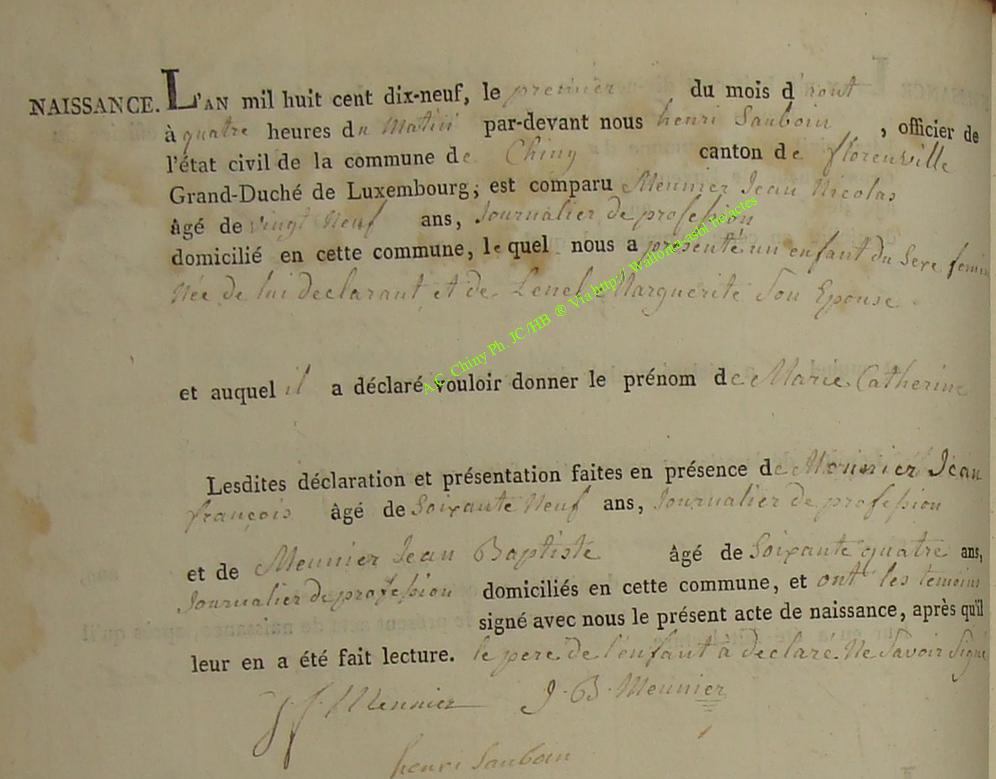 NAISSANCE. L'AN mil huit cent dix-neuf, le premier du mois d'aout
à quatre heures du Matin par-devant nous henri Sauboin, officier de
l'état civil de la commune de Chiny canton de florenville
Grand-Duché de Luxembourg, est comparu Meunier Jean Nicolas
âgé de vingt Neuf ans, Journalier de profession
domicilié en cette commune, lequel nous a présenté un enfant du Sexe feminin
Née de lui declarant et de Lenel Marguerite Son Epouse
et auquel il a déclaré vouloir donner le prénom de Marie Catherine
Lesdites déclaration et présentation faites en présence de Meunier Jean
françois âgé de Soixante Neuf ans, Journalier de profession
et de Meunier Jean Baptiste âgé de Soixante quatre ans,
Journalier de profession domiciliés en cette commune, et ont les temoins
signé avec nous le présent acte de naissance, après qu'il
leur en a été fait lecture. le pere de l'enfant à declaré Ne Savoir Signé
J f Meunier J. B. Meunier
henri Sauboin
A.C. Chiny Ph. JC/HB ® Via http// Wallonia-asbl.be/actes